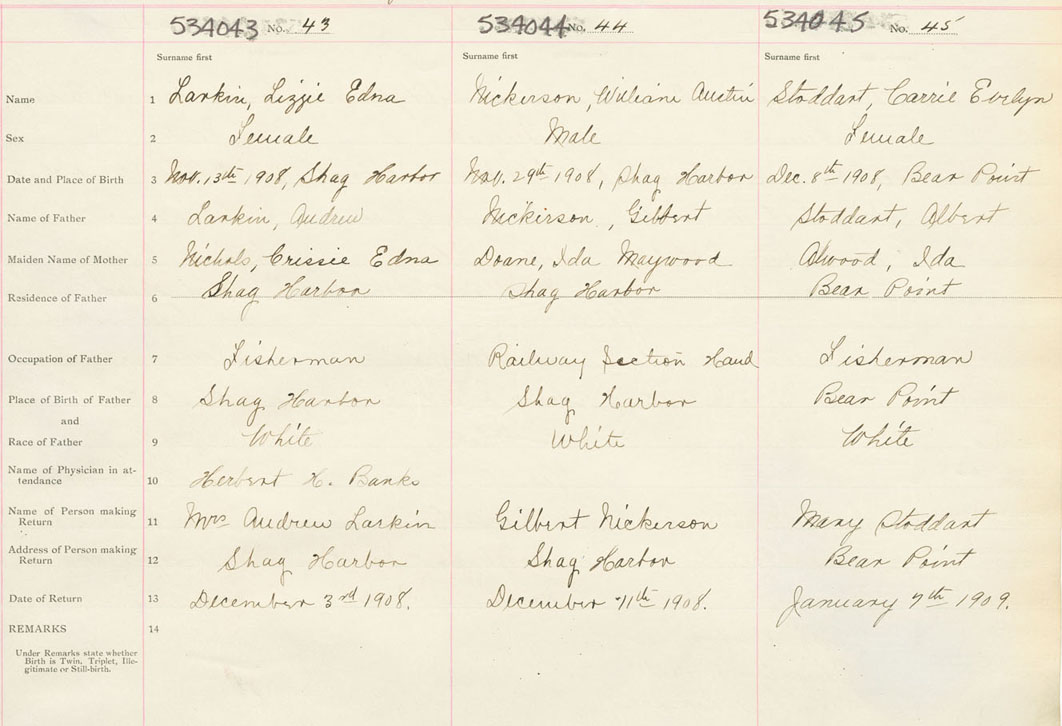 534043 No. 43 534044 No. 44 534045 No. 45
Surname first Surname first Surname first
Name 1 Larkin, Lizzie Edna Nickerson, William Austin Stoddart, Carrie Evelyn
Sex 2 Female Male Female
Date and Place of Birth 3 Nov. 13th 1908, Shag Harbor Nov. 29th 1908, Shag Harbor Dec. 8th 1908, Bear Point
Name of Father 4 Larkin, Andrew Nickirson, Gilbert Stoddart, Albert
Maiden Name of Mother 5 Nichols, Crissie Edna Doane, Ida Maywood Atwood, Ida
Residence of Father 6 Shag Harbor Shag Harbor Bear Point
Occupation of Father 7 Fisherman Railway Section Hand Fisherman
Place of Birth of Father 8 Shag Harbor Shag Harbor Bear Point
and
Race of Father 9 White White White
Name of Physician in at-
tendance 10 Herbert H. Banks
Name of Person making
Return 11 Mrs Andrew Larkin Gilbert Nickerson Mary Stoddart
Address of Person making
Return 12 Shag Harbor Shag Harbor Bear Point
Date of Return 13 December 3rd 1908. December 11th 1908. January 7th 1909.
REMARKS 14
Under Remarks state whether
Birth is Twin, Triplet, Ille-
gitimate or Still-birth.